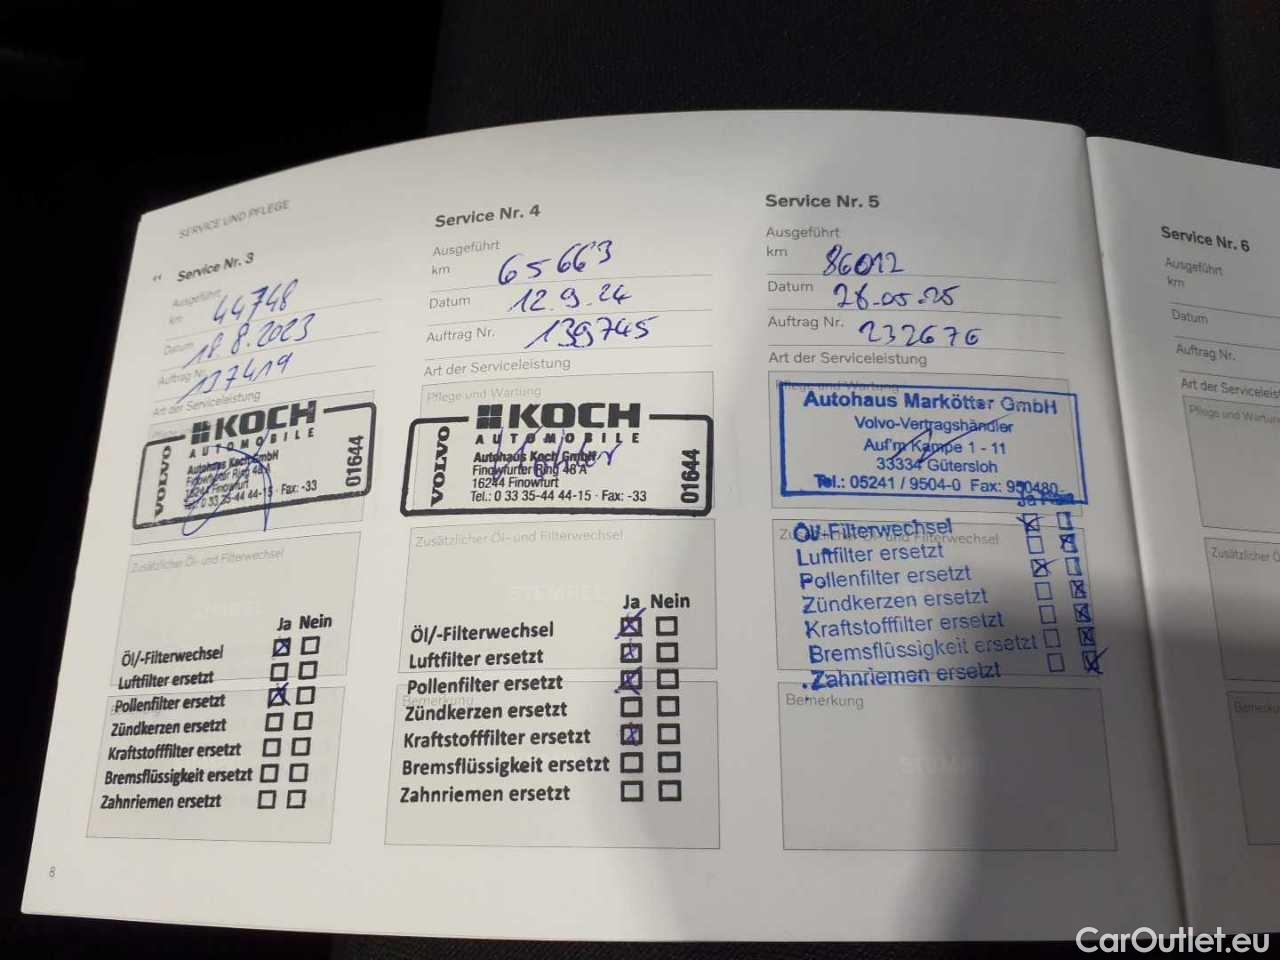 SERVICE UND PFLEGE
Service Nr. 3
Ausgeführt
km 44748
Datum 18.8.2023
Auftrag Nr. 137419
Art der Serviceleistung
VOLVO
KOCH
AUTOMOBILE
Autohaus Koch GmbH
Finowfurter Ring 48 A
16244 Finowfurt
Tel.: 0 33 35-44 44-15 · Fax: -33
01644
Zusätzlicher Öl- und Filterwechsel
Ja Nein
Öl/-Filterwechsel
Luftfilter ersetzt
Pollenfilter ersetzt
Zündkerzen ersetzt
Kraftstofffilter ersetzt
Bremsflüssigkeit ersetzt
Zahnriemen ersetzt
8
Service Nr. 4
Ausgeführt
km 65663
Datum 12.9.24
Auftrag Nr. 139745
Art der Serviceleistung
Pflege und Wartung
VOLVO
KOCH
AUTOMOBILE
Autohaus Koch GmbH
Finowfurter Ring 48 A
16244 Finowfurt
Tel.: 0 33 35-44 44-15 · Fax: -33
01644
Zusätzlicher Öl- und Filterwechsel
STEMPEL
Ja Nein
Öl/-Filterwechsel
Luftfilter ersetzt
Pollenfilter ersetzt
Bemerkung
Zündkerzen ersetzt
Kraftstofffilter ersetzt
Bremsflüssigkeit ersetzt
Zahnriemen ersetzt
Service Nr. 5
Ausgeführt
km 86012
Datum 26.05.25
Auftrag Nr. 232676
Art der Serviceleistung
Pflege und Wartung
Autohaus Markötter GmbH
Volvo-Vertragshändler
Auf'm Kampe 1 - 11
33334 Gütersloh
Tel.: 05241 / 9504-0 Fax: 950480
Ja Nein
Öl/-Filterwechsel
Zusätzlicher Öl- und Filterwechsel
Luftfilter ersetzt
Pollenfilter ersetzt
Zündkerzen ersetzt
Kraftstofffilter ersetzt
Bremsflüssigkeit ersetzt
Zahnriemen ersetzt
Bemerkung
Service Nr. 6
Ausgeführt
km
Datum
Auftrag Nr.
Art der Serviceleist
Pflege und Wartung
Zusätzlicher Öl
CarOutlet.eu